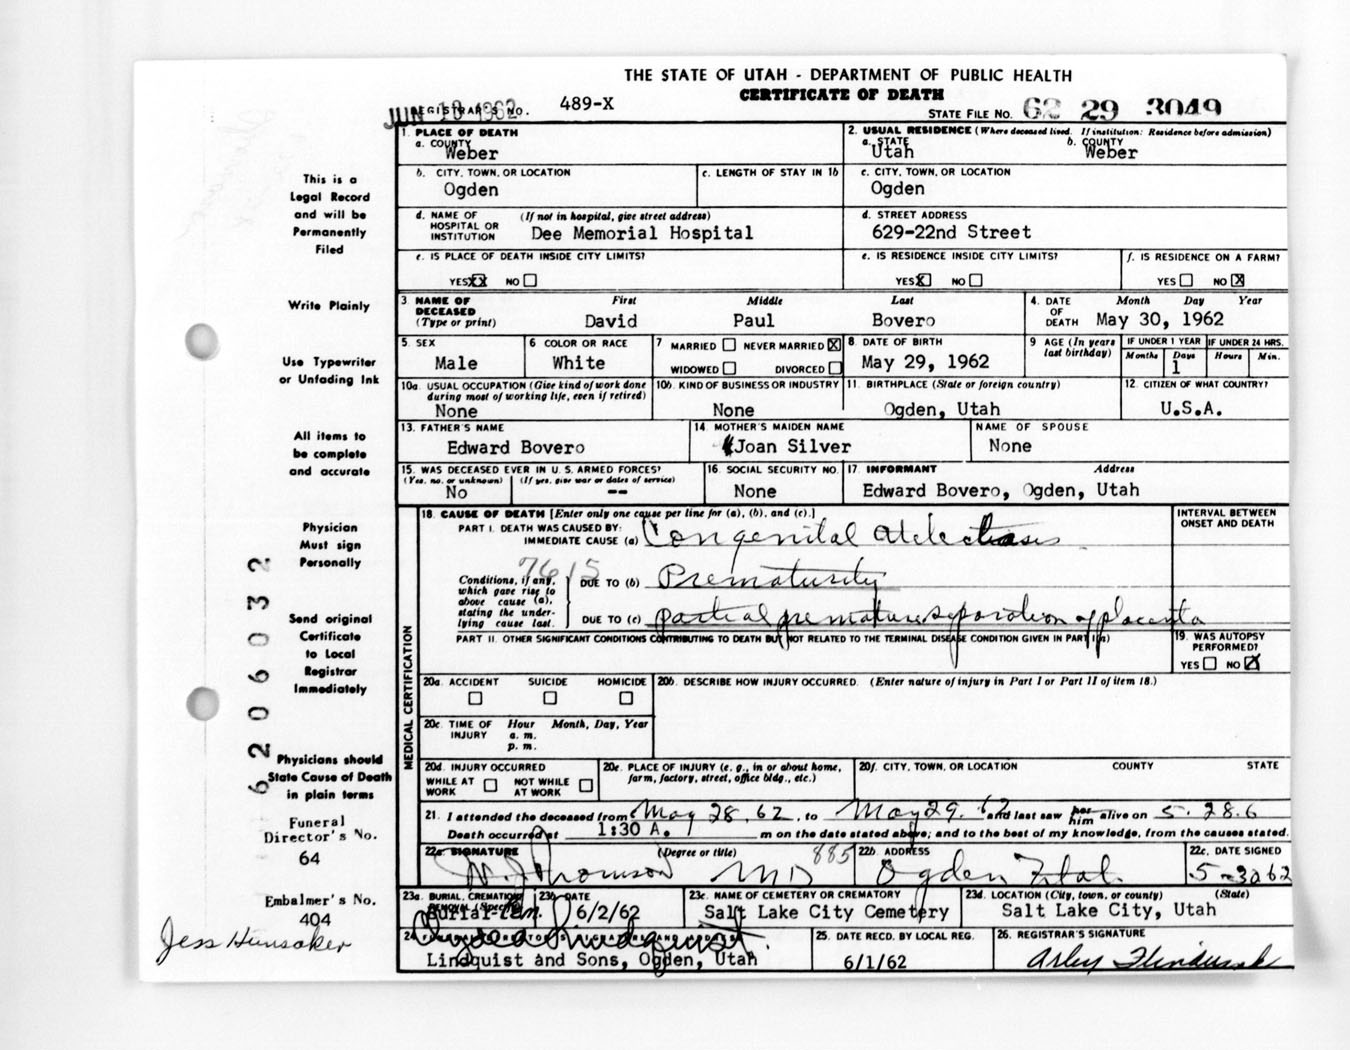 THE STATE OF UTAH - DEPARTMENT OF PUBLIC HEALTH
CERTIFICATE OF DEATH
JUN 10 1962 REGISTRAR'S NO. 489-X STATE FILE NO. 62 29 3049
1. PLACE OF DEATH
a. COUNTY
Weber
2. USUAL RESIDENCE (Where deceased lived. If institution: Residence before admission)
a. STATE b. COUNTY
Utah Weber
b. CITY, TOWN, OR LOCATION c. LENGTH OF STAY IN 1b
Ogden
c. CITY, TOWN, OR LOCATION
Ogden
d. NAME OF HOSPITAL OR INSTITUTION (If not in hospital, give street address)
Dee Memorial Hospital
d. STREET ADDRESS
629-22nd Street
e. IS PLACE OF DEATH INSIDE CITY LIMITS?
YES XX NO
e. IS RESIDENCE INSIDE CITY LIMITS?
YES X NO
f. IS RESIDENCE ON A FARM?
YES NO X
3. NAME OF DECEASED (Type or print) First Middle Last
David Paul Bovero
4. DATE OF DEATH Month Day Year
May 30, 1962
5. SEX
Male
6 COLOR OR RACE
White
7 MARRIED NEVER MARRIED X
WIDOWED DIVORCED
8. DATE OF BIRTH
May 29, 1962
9 AGE (In years last birthday) IF UNDER 1 YEAR IF UNDER 24 HRS.
Months Days Hours Min.
1
10a. USUAL OCCUPATION (Give kind of work done during most of working life, even if retired)
None
10b. KIND OF BUSINESS OR INDUSTRY
None
11. BIRTHPLACE (State or foreign country)
Ogden, Utah
12. CITIZEN OF WHAT COUNTRY?
U.S.A.
13. FATHER'S NAME
Edward Bovero
14. MOTHER'S MAIDEN NAME
Joan Silver
NAME OF SPOUSE
None
15. WAS DECEASED EVER IN U. S. ARMED FORCES?
(Yes, no, or unknown) (If yes, give war or dates of service)
No --
16. SOCIAL SECURITY NO.
None
17. INFORMANT Address
Edward Bovero, Ogden, Utah
MEDICAL CERTIFICATION
18. CAUSE OF DEATH [Enter only one cause per line for (a), (b), and (c).]
INTERVAL BETWEEN ONSET AND DEATH
PART I. DEATH WAS CAUSED BY:
IMMEDIATE CAUSE (a) Congenital Atelectasis
7615
Conditions, if any, which gave rise to above cause (a), stating the underlying cause last.
DUE TO (b) Prematurity
DUE TO (c) partial premature separation of placenta
PART II. OTHER SIGNIFICANT CONDITIONS CONTRIBUTING TO DEATH BUT NOT RELATED TO THE TERMINAL DISEASE CONDITION GIVEN IN PART I(a)
19. WAS AUTOPSY PERFORMED?
YES NO X
20a. ACCIDENT SUICIDE HOMICIDE
20b. DESCRIBE HOW INJURY OCCURRED. (Enter nature of injury in Part I or Part II of item 18.)
20c. TIME OF INJURY Hour Month, Day, Year
a. m.
p. m.
20d. INJURY OCCURRED
WHILE AT WORK NOT WHILE AT WORK
20e. PLACE OF INJURY (e. g., in or about home, farm, factory, street, office bldg., etc.)
20f. CITY, TOWN, OR LOCATION COUNTY STATE
21. I attended the deceased from May 28, 62, to May 29, 62 and last saw her him alive on 5-28-6
Death occurred at 1:30 A. m on the date stated above; and to the best of my knowledge, from the causes stated.
22a. SIGNATURE (Degree or title)
Thomson MD 885
22b. ADDRESS
Ogden Utah
22c. DATE SIGNED
5-30 62
23a. BURIAL, CREMATION, REMOVAL (Specify)
Burial-Rem.
23b. DATE
6/2/62
23c. NAME OF CEMETERY OR CREMATORY
Salt Lake City Cemetery
23d. LOCATION (City, town, or county) (State)
Salt Lake City, Utah
24
Lindquist and Sons, Ogden, Utah
25. DATE RECD. BY LOCAL REG.
6/1/62
26. REGISTRAR'S SIGNATURE
Arley
This is a
Legal Record
and will be
Permanently
Filed
Write Plainly
Use Typewriter
or Unfading Ink
All items to
be complete
and accurate
Physician
Must sign
Personally
Send original
Certificate
to Local
Registrar
Immediately
Physicians should
State Cause of Death
in plain terms
Funeral
Director's No.
64
Embalmer's No.
404
Jess Hunsaker
6206032